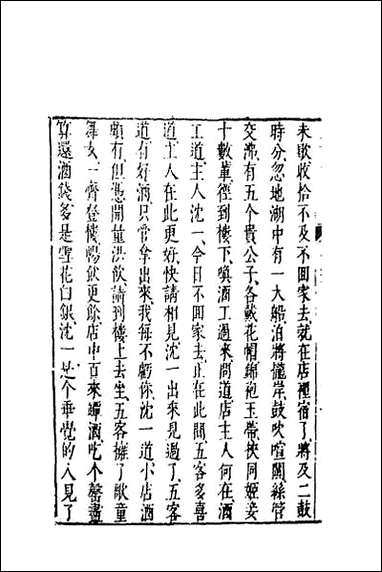 未敢收拾不及不回家去就在店裡宿了將及二鼓
時分忽地湖中有一大船泊將攏岸鼓吹喧闐絲管
交沸有五个貴公子各戴花帽錦袍玉帶挾同姬妾
十數輩徑到樓下喚酒工過來問道店主人何在酒
工道主人沈一今日不回家去正在此間五客多喜
道主人在此更好快請相見沈一出來見過了五客
道有好酒只管拿出來我每不虧你沈一道小店酒
頗有但憑開量洪飲請到樓上去坐五客擁了歌童
舞女一齊登樓暢飲更餘店中百來罈酒吃个罄盡
算還酒錢多是雪花白銀沈一是个乖覺的人見了